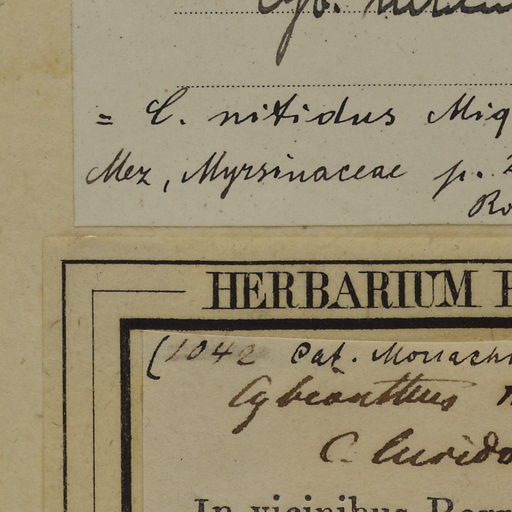 Cyb.
= C. nitidus Miq
Mez, Myrsinaceae p. 2
Ro
HERBARIUM
(1042 Cat. Monach
Cybianthus
C. lurido
In vicinibus